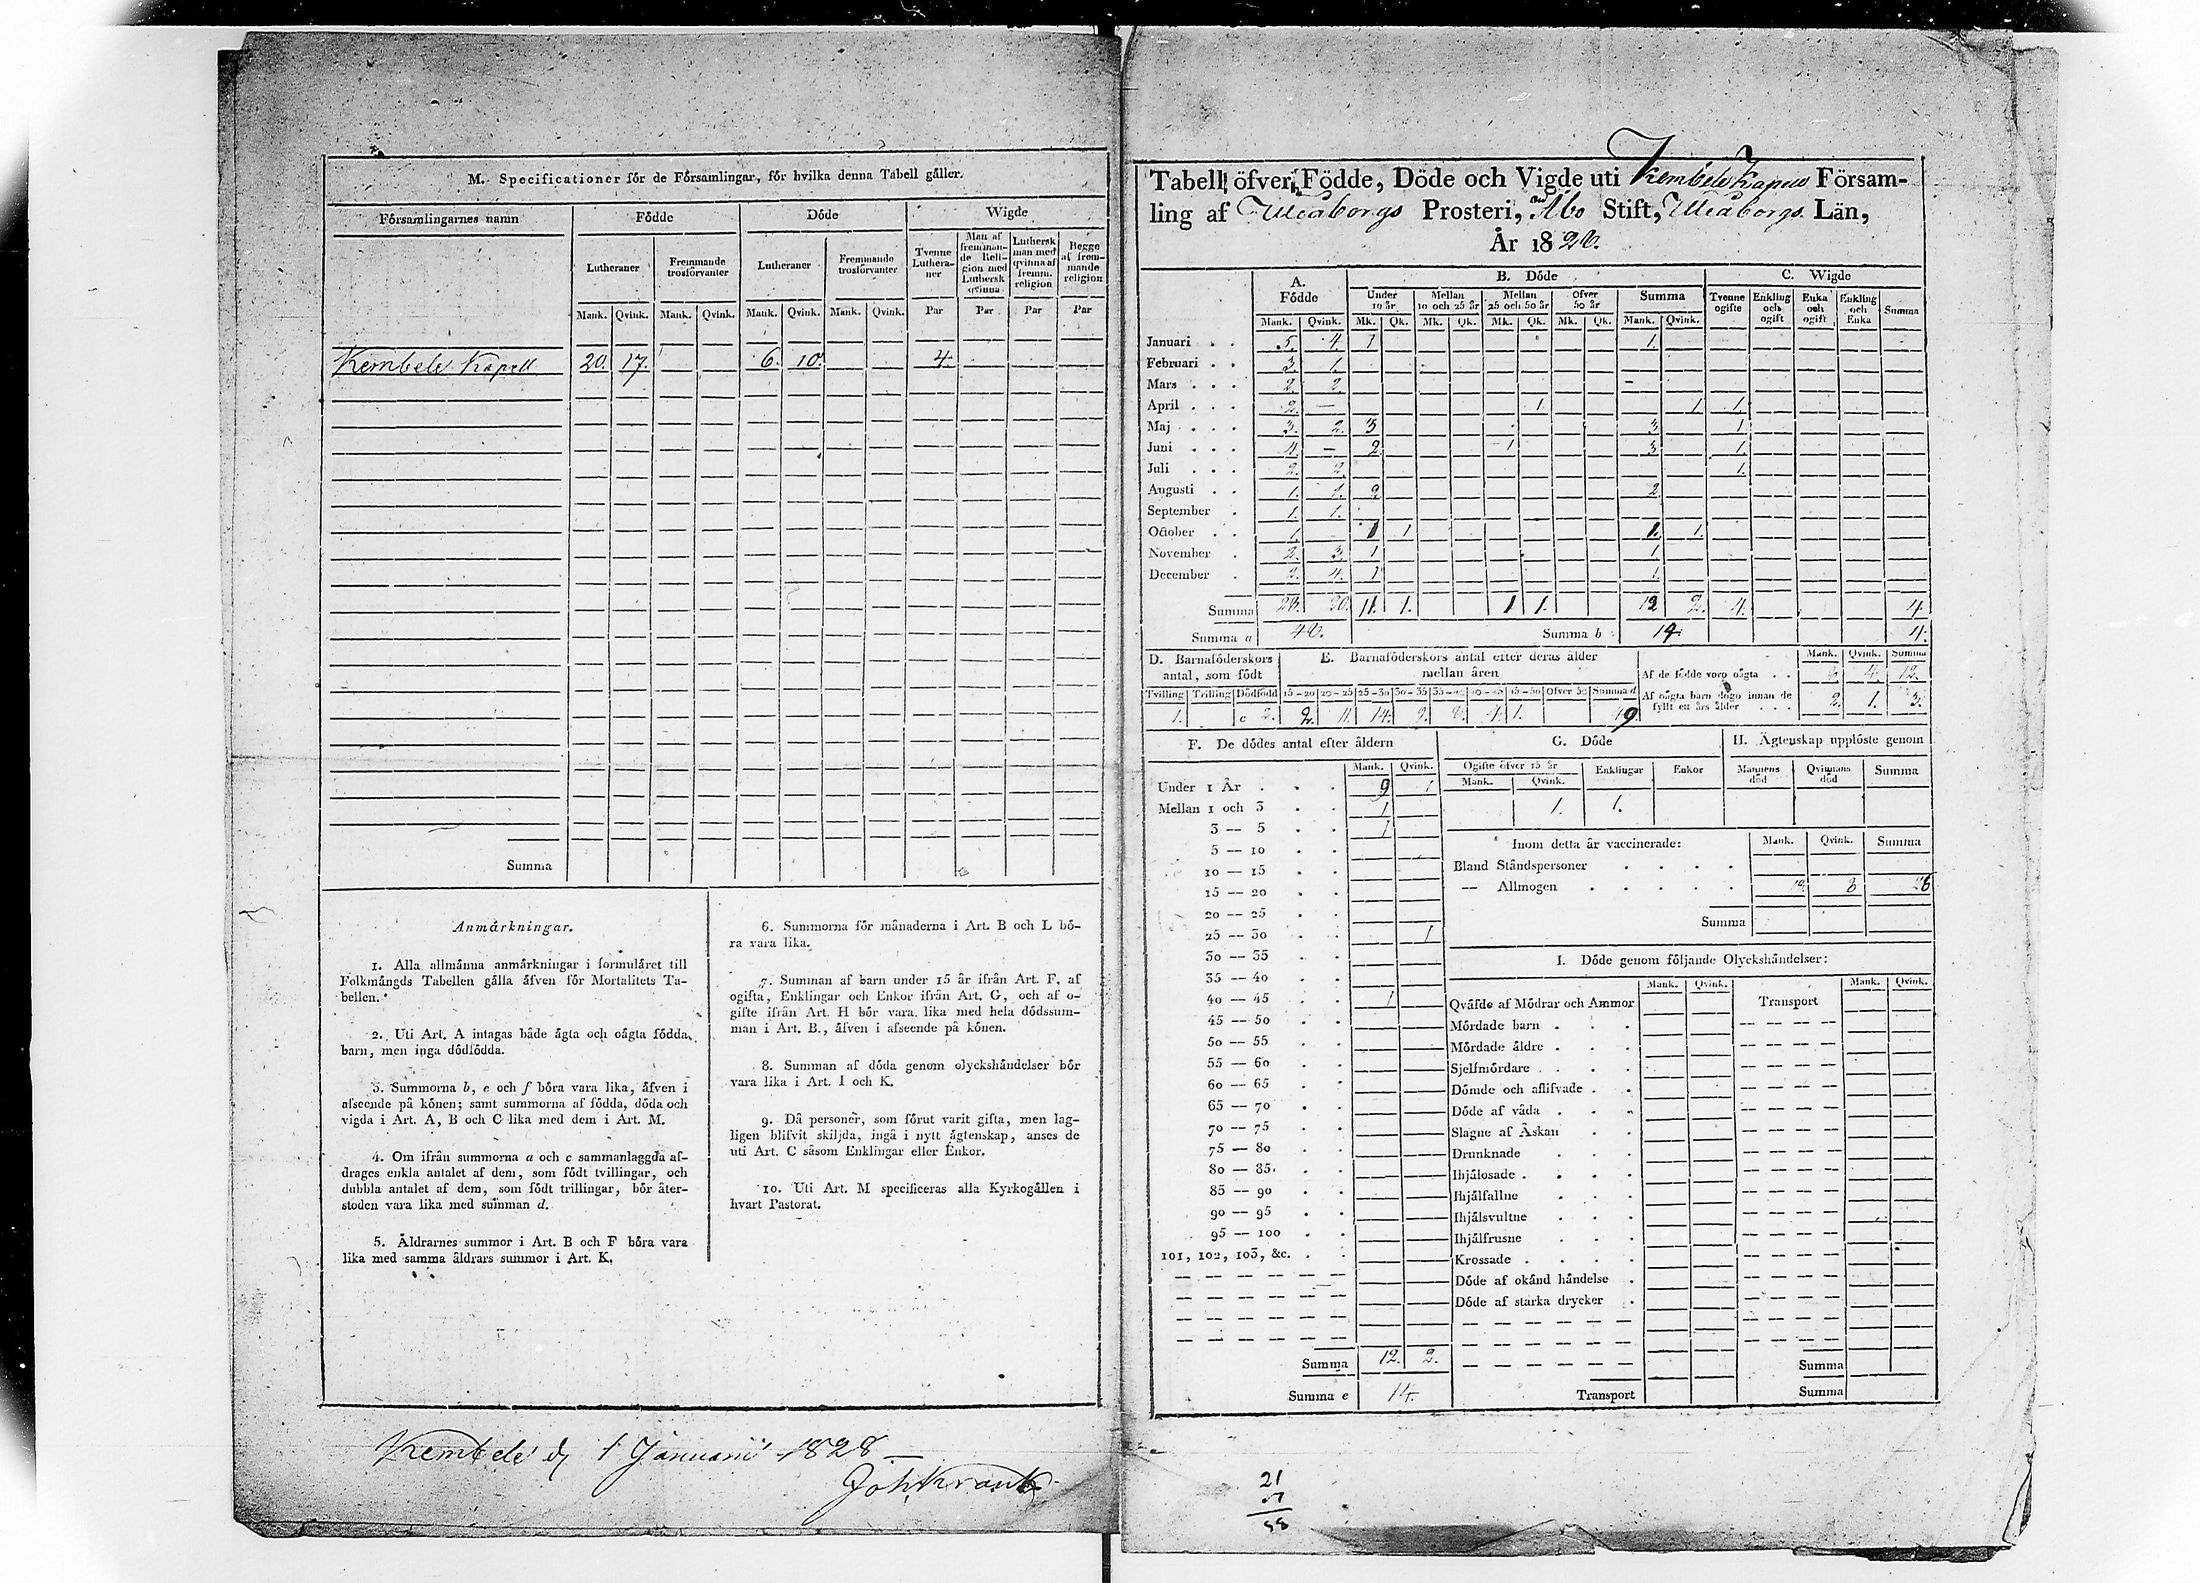 M. Specificationer för de Församlingar, för hvilka denna Tabell gäller.
Församlingarnes namn Födde Döde Wigde
Lutheraner Fremmande trosförvanter Lutheraner Fremmande trosförvanter Tvenne Lutheraner Man af fremmande Religion med Luthersk qvinna Luthersk man med qvinna af fremm. religion Begge af fremmande religion
Mank. Qvink. Mank. Qvink. Mank. Qvink. Mank. Qvink. Par Par Par Par
Kembele Kapell 20. 17. 6. 10. 4.
Summa
Anmärkningar.
1. Alla allmänna anmärkningar i formuläret till
Folkmängds Tabellen gälla äfven för Mortalitets Ta-
bellen.
2. Uti Art. A intagas både ägta och oägta födda
barn, men inga dödfödda.
3. Summorna b, e och f böra vara lika, äfven i
afseende på könen; samt summorna af födda, döda och
vigda i Art. A, B och C lika med dem i Art. M.
4. Om ifrån summorna a och c sammanlaggda af-
drages enkla antalet af dem, som födt tvillingar, och
dubbla antalet af dem, som födt trillingar, bör åter-
stoden vara lika med summan d.
5. Åldrarnes summor i Art. B och F böra vara
lika med samma åldrars summor i Art. K.
6. Summorna för månaderna i Art. B och L bö-
ra vara lika.
7. Summan af barn under 15 år ifrån Art. F, af
ogifta, Enklingar och Enkor ifrån Art. G, och af o-
gifte ifrån Art. H bör vara lika med hela dödssum-
man i Art. B., äfven i afseende på könen.
8. Summan af döda genom olyckshändelser bör
vara lika i Art. I och K.
9. Då personer, som förut varit gifta, men lag-
ligen blifvit skiljda, ingå i nytt ägtenskap, anses de
uti Art. C såsom Enklingar eller Enkor.
10. Uti Art. M specificeras alla Kyrkogällen i
hvart Pastorat.
Kembele d. 1 Januarii 1828
Joh Krank
Tabell öfver Födde, Döde och Vigde uti Kembele Kapells Försam-
ling af Uleåborgs Prosteri, Åbo Stift, Uleåborgs Län,
År 18
A. Födde B. Döde C. Wigde
Under 10 år Mellan 10 och 25 år Mellan 25 och 50 år Öfver 50 år Summa Tvenne ogifte Enkling och ogift Enka och ogift Enkling och Enka Summa
Mank. Qvink. Mk. Qk. Mk. Qk. Mk. Qk. Mk. Qk. Mank. Qvink.
Januari 5. 4. 1 1.
Februari 3. 1.
Mars 2. 2.
April 2. — 1. 1 1.
Maj 3. 2. 3 3. 1
Juni 4. — 2 1 3. 1.
Juli 2. 2. 1.
Augusti 1. 1. 2 2.
September 1. 1.
October 1. 1 1 1. 1.
November 2. 3. 1 1.
December 2. 4. 1 1.
Summa 28. 20. 11. 1. 1 1. 12 2. 4. 4.
Summa a 48. Summa b 14. 4.
D. Barnaföderskors antal, som födt
E. Barnaföderskors antal efter deras ålder mellan åren
Mank. Qvink. Summa
Tvilling Trilling Dödfödd 15-20 20-25 25-30 30-35 35-40 40-45 45-50 Öfver 50 Summa d
1. c 2. 2. 11. 14. 9. 8. 4. 1. 49
Af de födde voro oägta 8 4. 12.
Af oägta barn dogo innan de fyllt ett års ålder 2. 1. 3.
F. De dödes antal efter åldern
Mank. Qvink.
Under 1 År 9 1
Mellan 1 och 3 1
3 — 5 1
5 — 10
10 — 15
15 — 20
20 — 25
25 — 30 1
30 — 35
35 — 40
40 — 45 1
45 — 50
50 — 55
55 — 60
60 — 65
65 — 70
70 — 75
75 — 80
80 — 85
85 — 90
90 — 95
95 — 100
101, 102, 103, &c.
Summa 12. 2.
Summa e 14.
G. Döde
Ogifte öfver 15 år Enklingar Enkor
Mank. Qvink.
1. 1.
H. Ägtenskap upplöste genom
Mannens död Qvinnans död Summa
Inom detta år vaccinerade: Mank. Qvink. Summa
Bland Ståndspersoner
— Allmogen
Summa
I. Döde genom följande Olyckshändelser:
Mank. Qvink. Mank. Qvink.
Qväfde af Mödrar och Ammor Transport
Mördade barn
Mördade äldre
Sjelfmördare
Dömde och aflifvade
Döde af våda
Slagne af Åskan
Drunknade
Ihjälosade
Ihjälfallne
Ihjälsvultne
Ihjälfrusne
Krossade
Döde af okänd händelse
Döde af starka drycker
Summa
Transport Summa
21